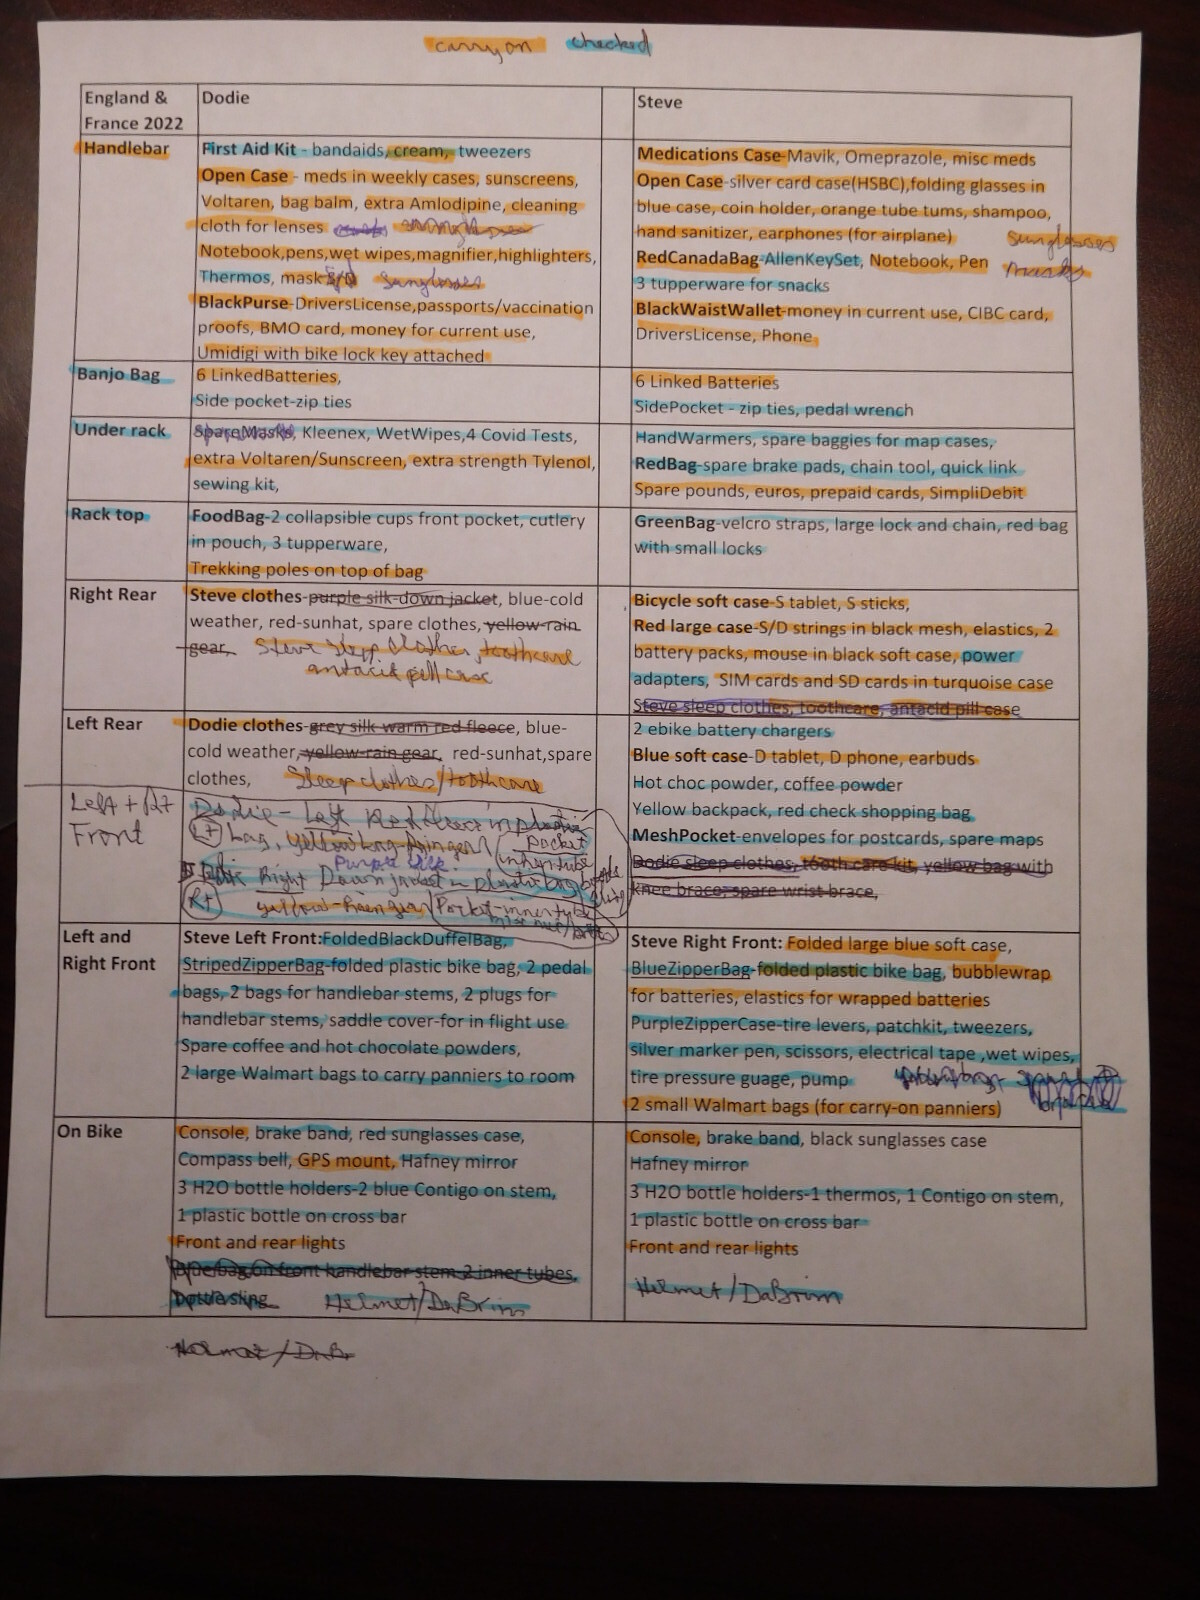 carry on checked
England & France 2022
Dodie
Steve
Handlebar
First Aid Kit - bandaids, cream, tweezers
Open Case - meds in weekly cases, sunscreens,
Voltaren, bag balm, extra Amlodipine, cleaning
cloth for lenses
Notebook,pens,wet wipes,magnifier,highlighters,
Thermos, mask sunglasses
BlackPurse-DriversLicense,passports/vaccination
proofs, BMO card, money for current use,
Umidigi with bike lock key attached
Medications Case-Mavik, Omeprazole, misc meds
Open Case-silver card case(HSBC),folding glasses in
blue case, coin holder, orange tube tums, shampoo,
hand sanitizer, earphones (for airplane) sunglasses
RedCanadaBag-AllenKeySet, Notebook, Pen masks
3 tupperware for snacks
BlackWaistWallet-money in current use, CIBC card,
DriversLicense, Phone
Banjo Bag
6 LinkedBatteries,
Side pocket-zip ties
6 Linked Batteries
SidePocket - zip ties, pedal wrench
Under rack
SpareMasks, Kleenex, WetWipes,4 Covid Tests,
extra Voltaren/Sunscreen, extra strength Tylenol,
sewing kit,
HandWarmers, spare baggies for map cases,
RedBag-spare brake pads, chain tool, quick link
Spare pounds, euros, prepaid cards, SimpliDebit
Rack top
FoodBag-2 collapsible cups front pocket, cutlery
in pouch, 3 tupperware,
Trekking poles on top of bag
GreenBag-velcro straps, large lock and chain, red bag
with small locks
Right Rear
Steve clothes-purple silk-down jacket, blue-cold
weather, red-sunhat, spare clothes, yellow-rain
gear, Steve sleep clothes, toothcare
antacid pill case
Bicycle soft case-S tablet, S sticks,
Red large case-S/D strings in black mesh, elastics, 2
battery packs, mouse in black soft case, power
adapters, SIM cards and SD cards in turquoise case
Steve sleep clothes, toothcare, antacid pill case
Left Rear
Dodie clothes-grey silk warm red fleece, blue-
cold weather, yellow-rain gear, red-sunhat,spare
clothes, Sleep clothes/toothcare
2 ebike battery chargers
Blue soft case-D tablet, D phone, earbuds
Hot choc powder, coffee powder
Yellow backpack, red check shopping bag
MeshPocket-envelopes for postcards, spare maps
Dodie sleep clothes, tooth care kit, yellow bag with
knee brace, spare wrist brace,
Left + Rt
Front
Dodie - Left Red fleece in plastic
Lt bag, yellow pocket
purple silk
Right Down jacket in plastic bag
Rt yellow-raingear Pocket-innertube
Left and
Right Front
Steve Left Front:FoldedBlackDuffelBag,
StripedZipperBag-folded plastic bike bag, 2 pedal
bags, 2 bags for handlebar stems, 2 plugs for
handlebar stems, saddle cover-for in flight use
Spare coffee and hot chocolate powders,
2 large Walmart bags to carry panniers to room
Steve Right Front: Folded large blue soft case,
BlueZipperBag-folded plastic bike bag, bubblewrap
for batteries, elastics for wrapped batteries
PurpleZipperCase-tire levers, patchkit, tweezers,
silver marker pen, scissors, electrical tape ,wet wipes,
tire pressure guage, pump
2 small Walmart bags (for carry-on panniers)
On Bike
Console, brake band, red sunglasses case,
Compass bell, GPS mount, Hafney mirror
3 H2O bottle holders-2 blue Contigo on stem,
1 plastic bottle on cross bar
Front and rear lights
Blue bag on front handlebar stem-2 inner tubes,
bottle sling Helmet/DaBrim
Console, brake band, black sunglasses case
Hafney mirror
3 H2O bottle holders-1 thermos, 1 Contigo on stem,
1 plastic bottle on cross bar
Front and rear lights
Helmet/DaBrim
Helmet/DaBr